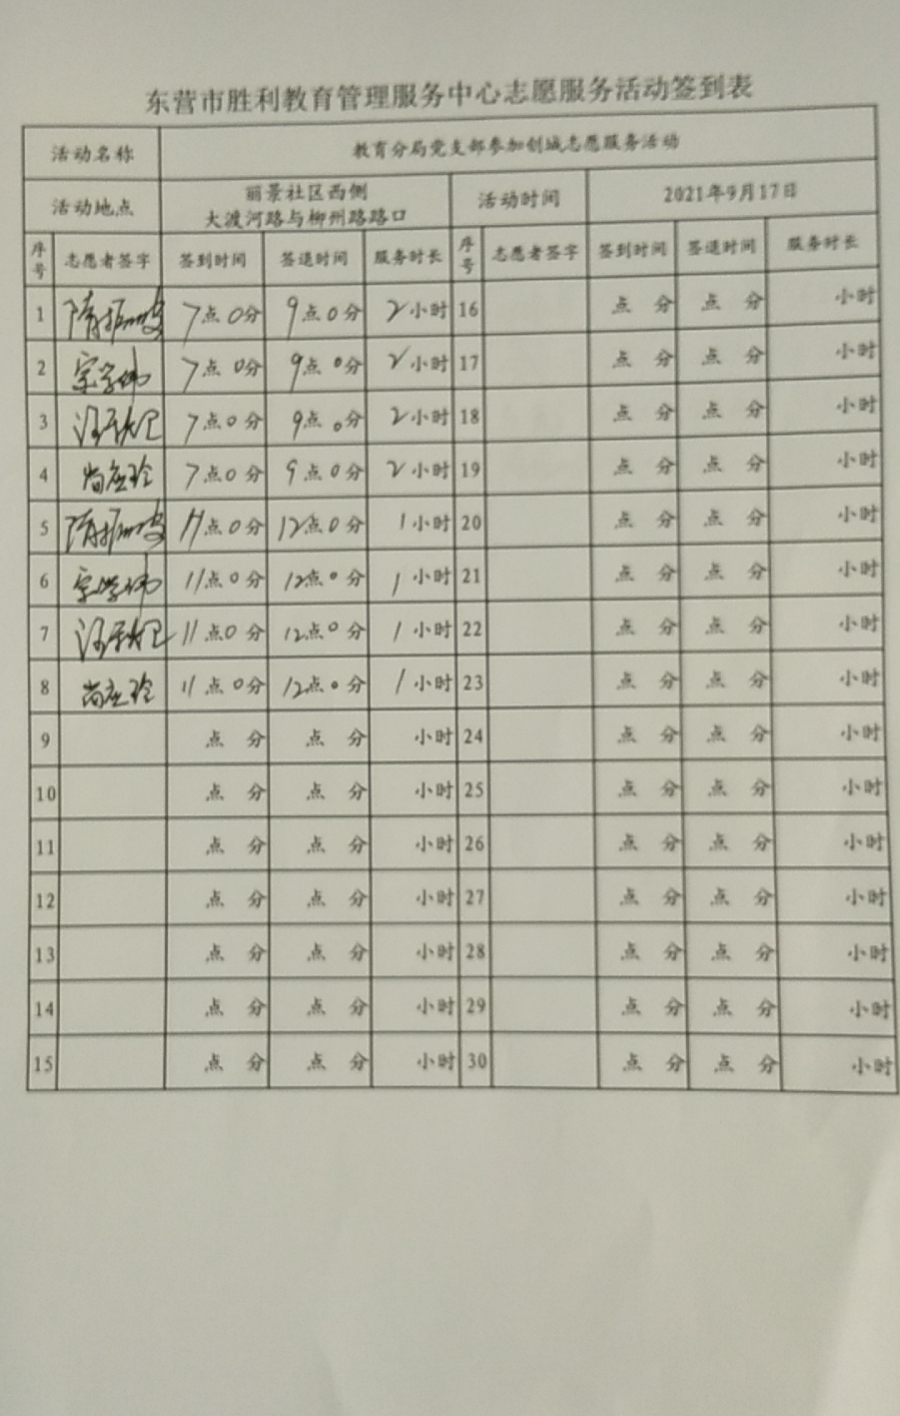 东营市胜利教育管理服务中心志愿服务活动签到表
活动名称 教育分局党支部参加创城志愿服务活动
活动地点 丽景社区西侧 大渡河路与柳州路路口 活动时间 2021年9月17日
序号 志愿者签字 签到时间 签退时间 服务时长 序号 志愿者签字 签到时间 签退时间 服务时长
1 7点0分 9点0分 2小时 16 点 分 点 分 小时
2 7点0分 9点0分 2小时 17 点 分 点 分 小时
3 7点0分 9点0分 2小时 18 点 分 点 分 小时
4 7点0分 9点0分 2小时 19 点 分 点 分 小时
5 11点0分 12点0分 1小时 20 点 分 点 分 小时
6 11点0分 12点0分 1小时 21 点 分 点 分 小时
7 11点0分 12点0分 1小时 22 点 分 点 分 小时
8 11点0分 12点0分 1小时 23 点 分 点 分 小时
9 点 分 点 分 小时 24 点 分 点 分 小时
10 点 分 点 分 小时 25 点 分 点 分 小时
11 点 分 点 分 小时 26 点 分 点 分 小时
12 点 分 点 分 小时 27 点 分 点 分 小时
13 点 分 点 分 小时 28 点 分 点 分 小时
14 点 分 点 分 小时 29 点 分 点 分 小时
15 点 分 点 分 小时 30 点 分 点 分 小时